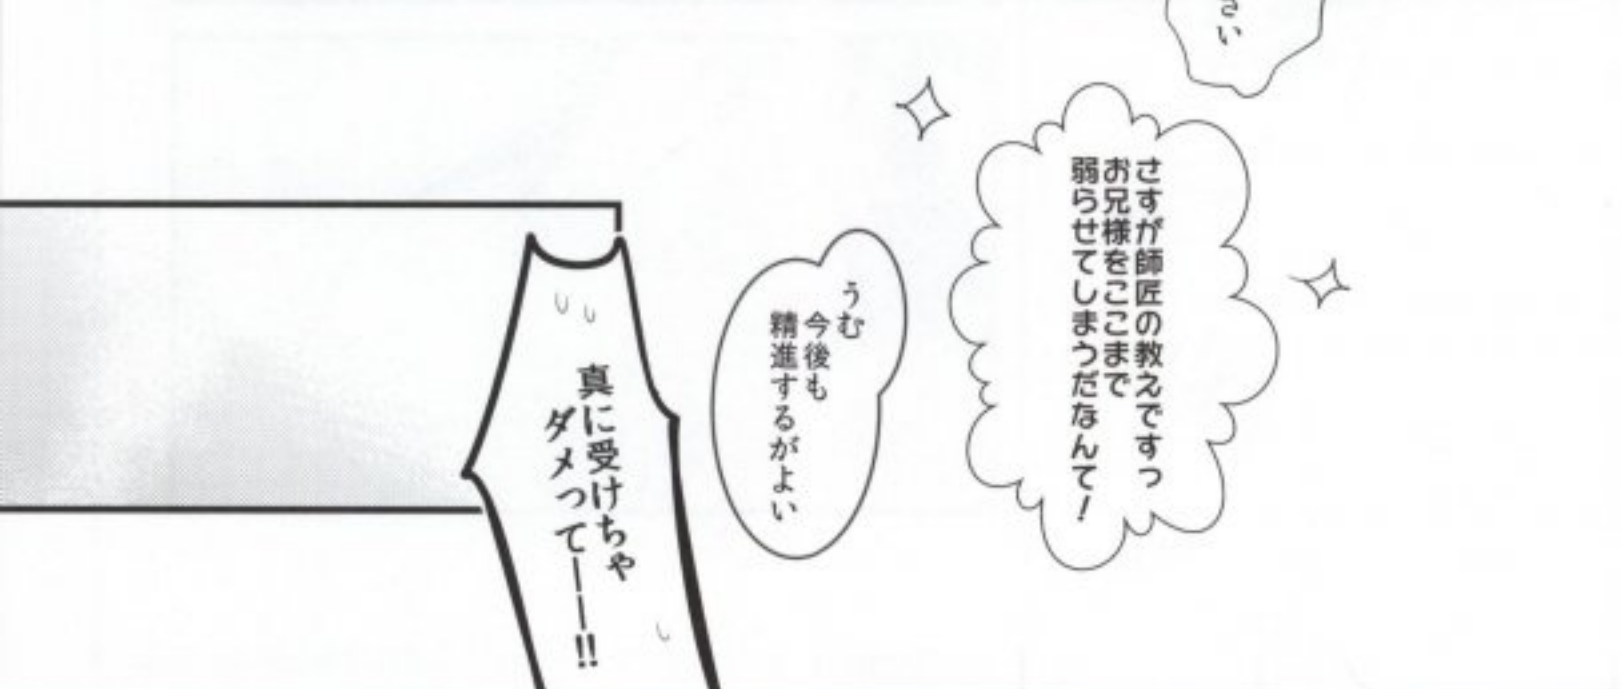 さい
さすが師匠の教えですっ
お兄様をここまで
弱らせてしまうだなんて！
うむ
今後も
精進するがよい
真に受けちゃ
ダメって――!!